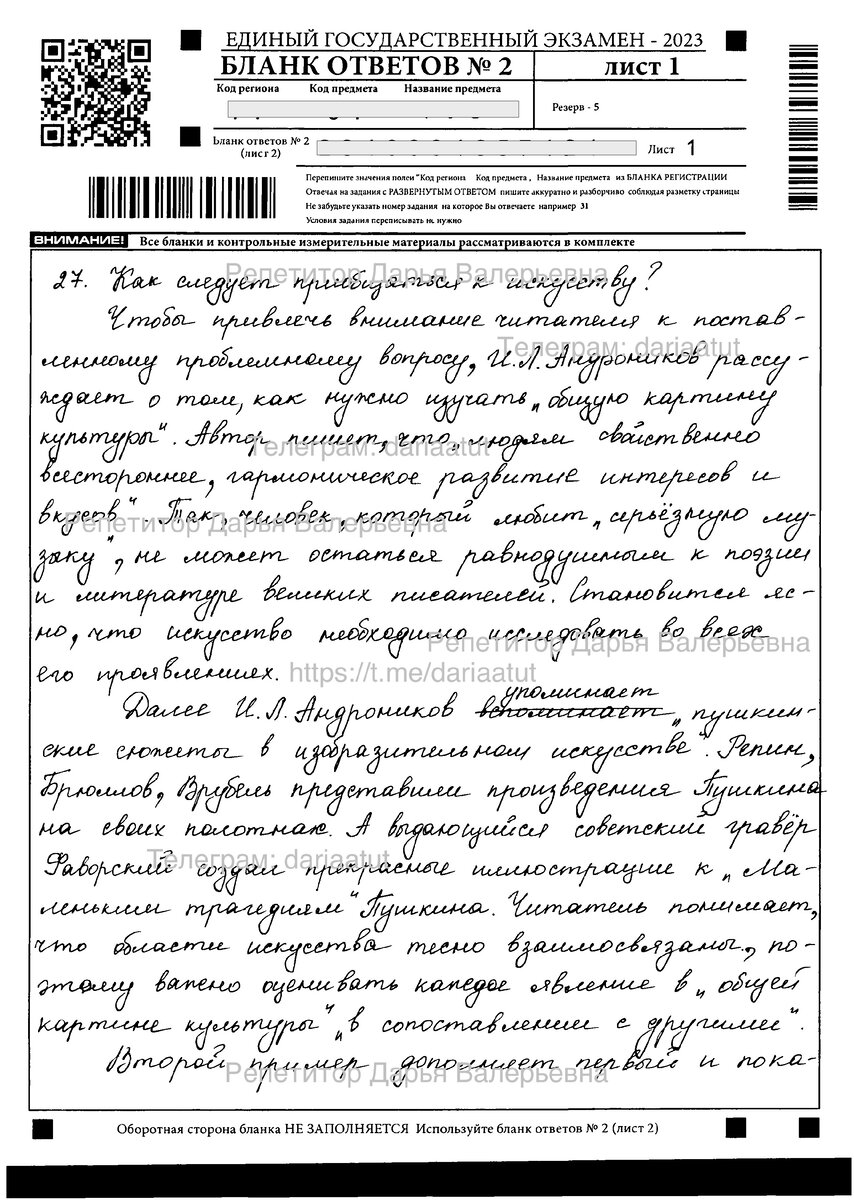 ЕДИНЫЙ ГОСУДАРСТВЕННЫЙ ЭКЗАМЕН - 2023
БЛАНК ОТВЕТОВ № 2
лист 1
Код региона Код предмета Название предмета
Резерв - 5
Бланк ответов № 2
(лист 2)
Лист 1
Перепишите значения полей "Код региона Код предмета , Название предмета из БЛАНКА РЕГИСТРАЦИИ
Отвечая на задания с РАЗВЕРНУТЫМ ОТВЕТОМ пишите аккуратно и разборчиво соблюдая разметку страницы
Не забудьте указать номер задания на которое Вы отвечаете например 31
Условия задания переписывать не нужно
ВНИМАНИЕ! Все бланки и контрольные измерительные материалы рассматриваются в комплекте
27. Как следует приобщаться к искусству?
Репетитор Дарья Валерьевна
Чтобы привлечь внимание читателя к постав-
Телеграм: dariaatut
ленному проблемному вопросу, И.Л. Андроников рассу-
ждает о том, как нужно изучать „общую картину
культуры". Автор пишет, что „людям свойственно
Телеграм: dariaatut
всестороннее, гармоническое развитие интересов и
вкусов". Так, человек, который любит „серьёзную му-
Репетитор Дарья Валерьевна
зыку", не может остаться равнодушным к поэзии
и литературе великих писателей. Становится яс-
но, что искусство необходимо исследовать во всех
Репетитор Дарья Валерьевна
его проявлениях.
https://t.me/dariaatut
упоминает
Далее И.Л. Андроников вспоминает „пушкин-
ские сюжеты в изобразительном искусстве". Репин,
Брюллов, Врубель представили произведения Пушкина
на своих полотнах. А выдающийся советский гравёр
Фаворский создал прекрасные иллюстрации к „Ма-
Телеграм: dariaatut
леньким трагедиям" Пушкина. Читатель понимает,
что области искусства тесно взаимосвязаны, по-
этому важно оценивать каждое явление в „общей
картине культуры", „в сопоставлении с другими".
Второй пример дополняет первый и пока-
Репетитор Дарья Валерьевна
Оборотная сторона бланка НЕ ЗАПОЛНЯЕТСЯ Используйте бланк ответов № 2 (лист 2)